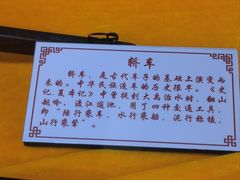 轿车
轿车，是古代车子的基础上演变而
来的。中华民族造车的历史很早。《史
记·夏本记》中曾提到大禹治水时，翻山
越岭，渡江过池，用了四种交通工具，
即“陆行乘车，水行乘船，泥行乘橇，
山行乘檋”。